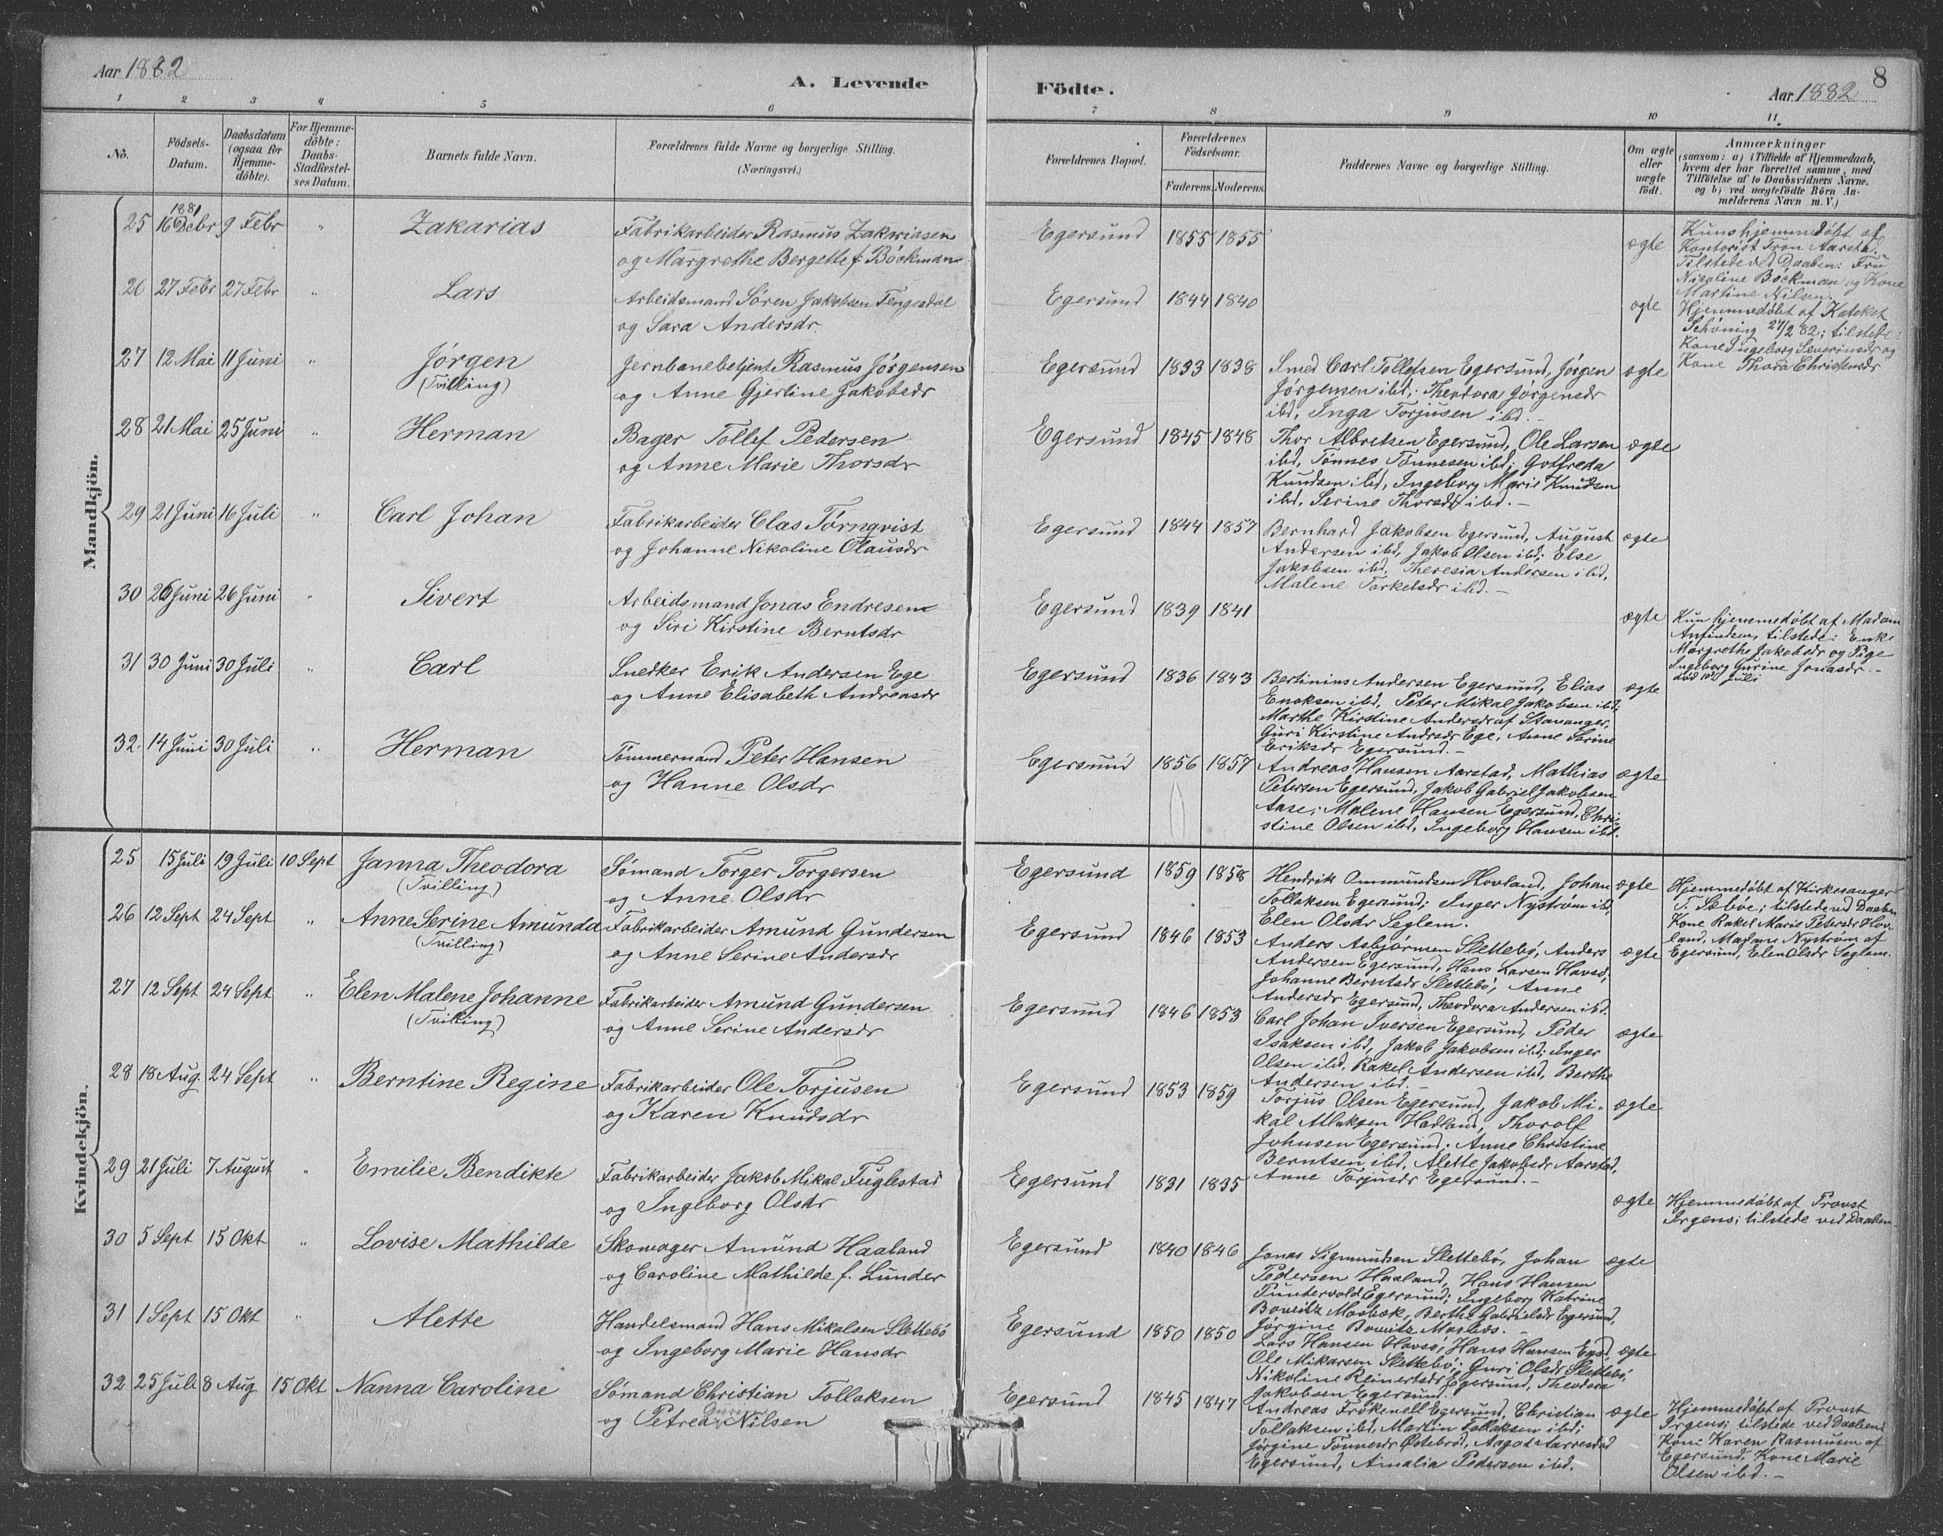 Aar 1882
A. Levende Födte.
Aar 1882
8
1 2 3 4 5 6 7 8 9 10 11
No.
Födsels-Datum.
Daabsdatum (ogsaa for Hjemme-döbte).
For Hjemme-döbte: Daabs-Stadfæstel-ses Datum.
Barnets fulde Navn.
Forældrenes fulde Navne og borgerlige Stilling. (Næringsvei.)
Forældrenes Bopæl.
Forældrenes Födselsaar.
Faderens. Moderens.
Faddernes Navne og borgerlige Stilling.
Om ægte eller uægte födt.
Anmærkninger
(saasom: a) i Tilfælde af Hjemmedaab, hvem der har forrettet samme, med Tilföielse af to Daabsvidners Navne. og b) ved uægtefödte Börn An-melderens Navn m. V.)
Mandkjön.
25 1881 16 Debr 9 Febr " Zakarias
Fabrikarbeider Rasmus Zakariassen
og Margrethe Bergette f. Böckman
Egersund 1855 1855 ægte
Kun hjemmedøbt af
Kontorist Tron Aarstad
Tilstede ved Daaben: Fru
Nicoline Böckman og Kone
Martine Nilsen.
26 27 Febr 27 Febr " Lars
Arbeidsmand Søren Jakobsen Tengesdal
og Sara Andersdr.
Egersund 1844 1840 ægte
Hjemmedøbt af Kateket
Schøning 27/2 82; tilstede:
Kone Ingeborg Severinsdr og
Kone Thora Christensdr
27 12 Mai 11 Juni " Jørgen
(Tvilling)
Jernbanebetjent Rasmus Jörgensen
og Anne Gjertine Jakobsdr
Egersund 1833 1838
Smed Carl Tollefsen Egersund, Jörgen
Jørgensen ibd, Theodora Jörgensdr
ibd, Inga Torjusen ibd. -
ægte
28 21 Mai 25 Juni " Herman
Bager Tollef Pedersen
og Anne Marie Thorsdr
Egersund 1845 1848
Thor Albretsen Egersund, Ole Larsen
ibd, Tönnes Tönnesen ibd; Gotfreda
Knudsen ibd, Ingeborg Marie Knudsen
ibd, Serine Thorsdr ibd. -
ægte
29 21 Juni 16 Juli " Carl Johan
Fabrikarbeider Clas Törnqvist
og Johanne Nikoline Olausdr
Egersund 1844 1857
Bernhard Jakobsen Egersund, August
Andersen ibd, Jakob Olsen ibd; Else
Jakobsen ibd, Theresia Andersen ibd,
Malene Torkelsdr ibd. -
ægte
30 26 Juni 26 Juni " Sivert
Arbeidsmand Jonas Endresen
og Siri Kirstine Berntsdr
Egersund 1839 1841 ægte
Kun hjemmedøbt af Madam
Anfindsen, tilstede: Enke
Margrethe Jakobsdr og Pige
Ingeborg Gurine Jonasdr. -
31 30 Juni 30 Juli " Carl
Snedker Erik Andersen Ege
og Anne Elisabeth Andreasdr
Egersund 1836 1843
Bertinius Andersen Egersund, Elias
Enoksen ibd, Peter Mikal Jakobsen ibd;
Marthe Kirstine Andersdr af Stavanger,
Guri Kirstine Andrsdr Ege, Anne Serine
Eriksdr Egersund. -
ægte
32. 14 Juni 30 Juli " Herman
Tömmermand Peter Hansen
og Hanne Olsdr
Egersund 1856 1857
Andreas Hansen Aarstad, Mathias
Petersen Egersund, Jakob Gabriel Jakobsen
Aase; Malene Hansen Egersund, Chri-
stine Olsen ibd, Ingeborg Hansen ibd.
ægte
Kvindekjön.
25 15 Juli 19 Juli 10 Sept Janna Theodora
(Tvilling)
Sømand Torger Torgersen
og Anne Olsdr
Egersund 1859 1858
Hendrik Ommundsen Hovland, Johan
Tollaksen Egersund; Inger Nyström ibd,
Elen Olsdr Seglem.
ægte
Hjemmedøbt af Kirkesanger
T. Sæbøe; tilstede ved Daaben
Kone Rakel Marie Petersdr Hov-
land, Madam Nyström af
Egersund, Elen Olsdr Seglem.
26 12 Sept 24 Sept " Anne Serine Amunda
(Tvilling)
Fabrikarbeider Amund Gundersen
og Anne Serine Andersdr
Egersund 1846 1853
Anders Asbjörnsen Slettebö, Anders
Andersen Egersund, Hans Larsen Havsö,
Johanne Berntsdr Slettebö, Anne
Andersdr Egersund, Theodora Andersen ibd.
ægte
27 12 Sept 24 Sept " Elen Malene Johanne
(Tvilling)
Fabrikarbeider Amund Gundersen
og Anne Serine Andersdr
Egersund 1846 1853
Carl Johan Iversen Egersund, Peder
Isaksen ibd, Jakob Jakobsen ibd; Inger
Olsen ibd, Rakel Andersen ibd, Berthe
Andersen ibd. -
ægte
28 18 Aug. 24 Sept " Berntine Regine
Fabrikarbeider Ole Torjusen
og Karen Knudsdr
Egersund 1853 1859
Torjus Olsen Egersund, Jakob Mi-
kal Atlaksen Hadland, Thorolf
Johnsen Egersund; Anne Christine
Berntsen ibd, Alette Jakobsdr Aarstad,
Anne Torjusdr Egersund. -
ægte
29 21 Juli 7 August " Emilie Bendikte
Fabrikarbeider Jakob Mikal Fuglestad
og Ingeborg Olsdr
Egersund 1831 1835 ægte
Hjemmedøbt af Provst
Irgens; tilstede ved Daaben
30 5 Sept 15 Okt " Lovise Mathilde
Skomager Amund Haaland
og Caroline Mathilde f. Lunder
Egersund 1840 1846
Jonas Sigmundsen Slettebö, Johan
Pedersen Haaland, Hans Hansen
Egersund; Ingeborg Katrine
Bowitz Mosbæk, Berthe Gabrielsdr Egersund,
Jörgine Bowitz
ægte
31 1 Sept 15 Okt " Alette
Handelsmand Hans Mikalsen Slettebö
og Ingeborg Marie Hansdr
Egersund 1850 1850
Lars Hansen Havsö, Hans Hansen
Ole Mikalsen Slettebö; Guri Olsdr Slettebö,
Nikoline Reinertsdr Egersund, Theodora
Jakobsen Egersund.
ægte
32 25 Juli 8 Aug 15 Okt Nanna Caroline
Sømand Christian Tollaksen
og Petrea Nilsen
Egersund 1845 1847
Andreas Egersund, Christian
Tollaksen ibd, Martin Tollaksen ibd;
Jörgine Tönnesdr Østebröd,
Egersund, Amalia Pedersen ibd.
ægte
Hjemmedøbt af Provst
Irgens; tilstede ved Daaben:
Kone Karen Rasmusen af
Egersund, Kone Marie
Olsen ibd. -